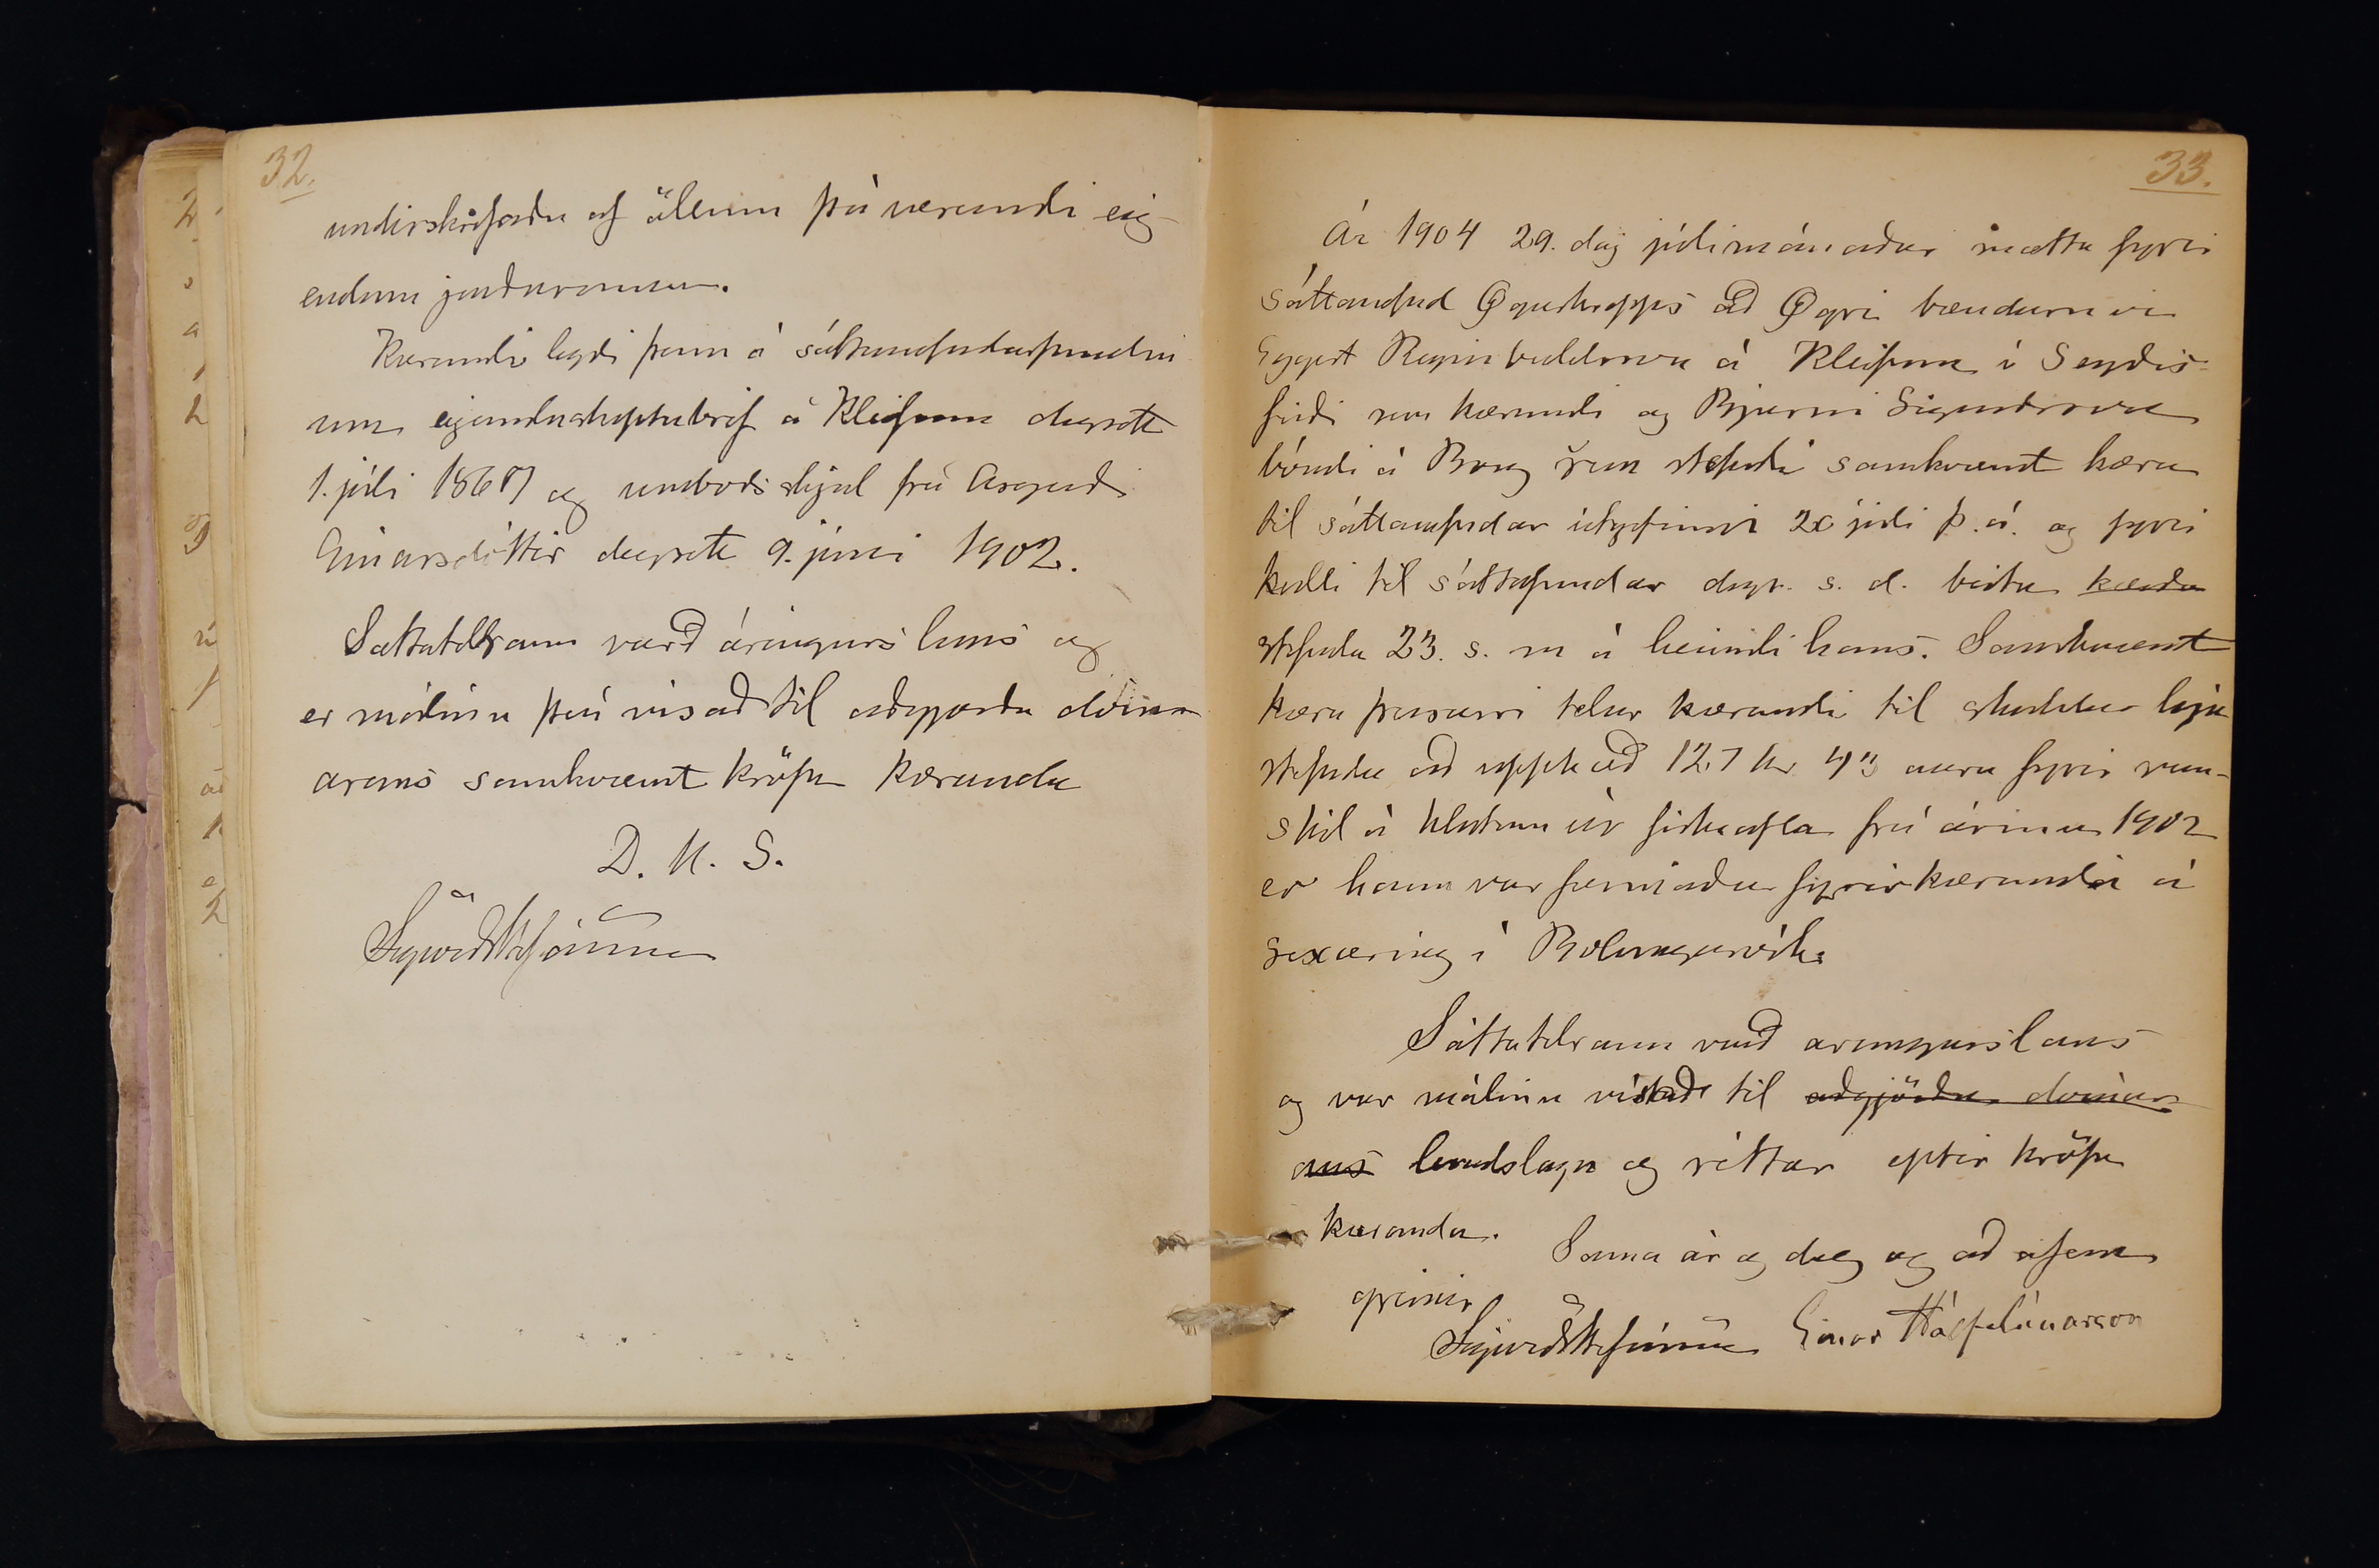 32.
undirskrifaðu af öllum þáverandi eig-
endum jarðarinnar.
Kærandi lagði fram á sáttanefndarfundin
um eigandaskiptabréf á Kleifum dagsett
1. júli 1867 og umboðsskjal frá
Einarsdóttir dagsett 9. júni 1902.
Sáttatilraun varð árangurslaus og
er málinu því vísað til aðgjörða dóm-
arans samkvæmt kröfu kæranda
D. u. S.
Sigurður Stefánsson
33.
Ár 1904 29. dag júlimánaðar mættu fyrir
sáttanefnd Ögurhrepps að Ögri bændurnir
Eggert Reginbaldsson á Kleifum í Seyðis-
firði sem kærandi og Bjarni Sigurðsson
bóndi á sem stefndi samkvæmt kæru
til sáttanefndar útgefinni júli þ. á. og fyrir
kalli til sáttafundar dags. s. d. birtu kærða
stefnda 23. s. m á heimili hans. Samkvæmt
kæru þessari telur kærandi til skuldar hjá
stefnda að upphæð 127 kr 43 aura fyrir van-
skil á hlutum úr fiskiafla frá árinu 1902
er hann var formaður fyrir kæranda á
sexæring í Bolungarvík.
Sáttatilraun varð árangurslaus
og var málinu vísað til aðgjörða dómar-
ans landslaga og réttar eptir kröfu
kæranda.
Sama ár og dag og að ofan
greinir
Sigurður Stefánsson Einar Hálfdánarson